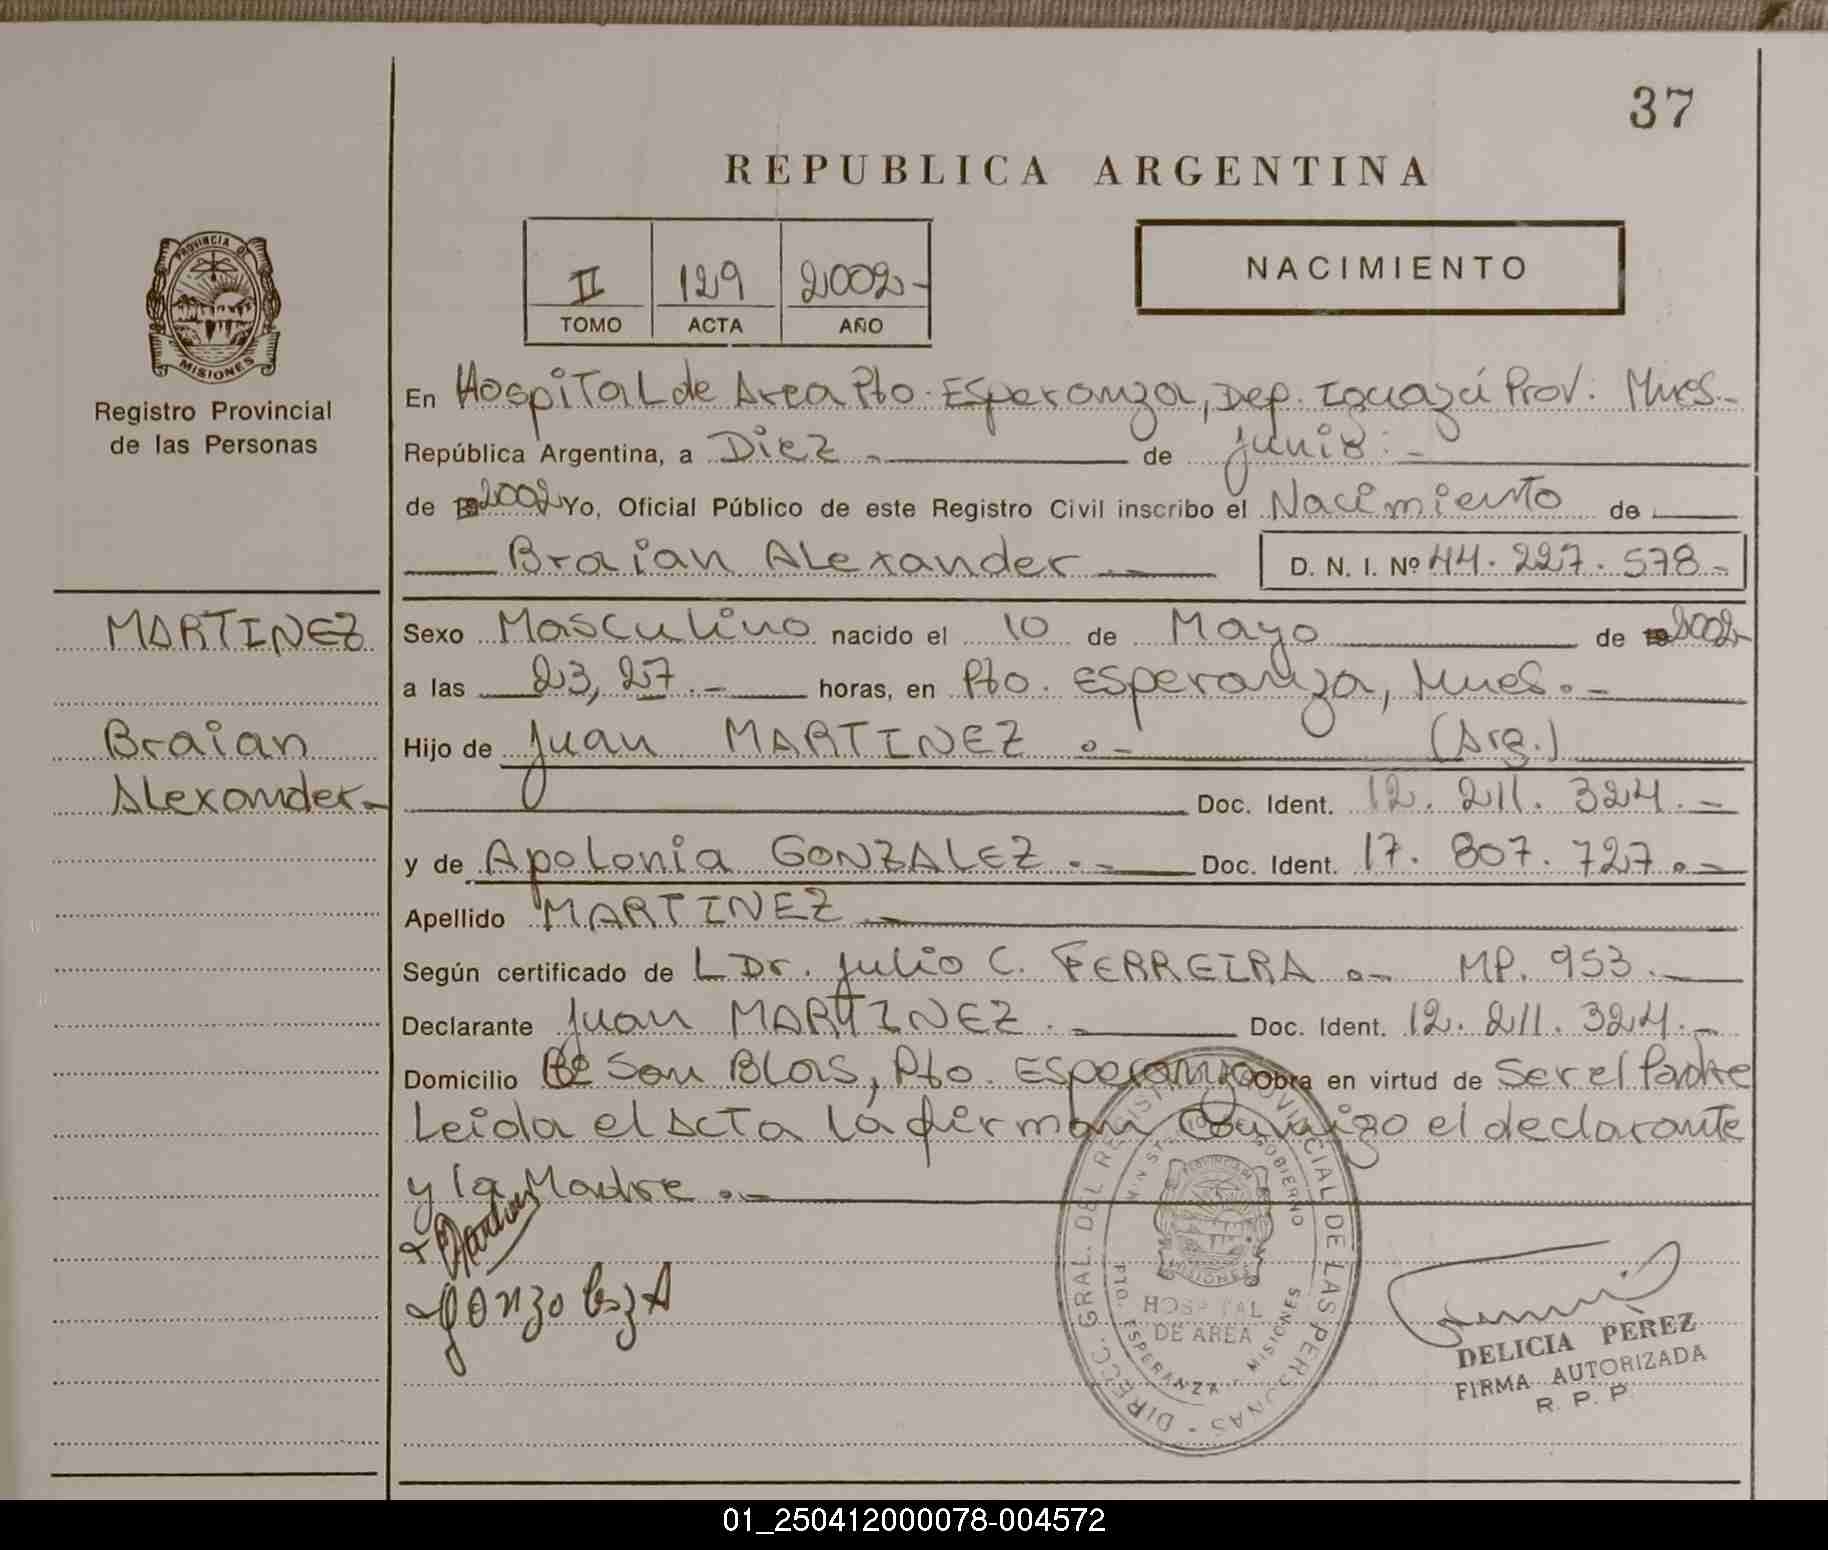 37
REPUBLICA ARGENTINA
PROVINCIA D
MISIONES
Registro Provincial
de las Personas
II 129 2002-
TOMO ACTA AÑO
NACIMIENTO
En Hospital de Area Pto. Esperanza, Dep. Iguazú Prov. Mnes.-
República Argentina, a Diez.- de junio.-
de 2002 Yo, Oficial Público de este Registro Civil inscribo el Nacimiento de
Braian Alexander D. N. I. Nº 44.227.578.-
MARTINEZ
Braian
Alexander.-
Sexo Masculino nacido el 10 de Mayo de 2002-
a las 23,27.- horas, en Pto. Esperanza, Mnes.-
Hijo de Juan MARTINEZ.- (Arg.)
Doc. Ident. 12.211.324.-
y de Apolonia GONZALEZ.- Doc. Ident. 17.807.727.-
Apellido MARTINEZ.-
Según certificado de L Dr. Julio C. FERREIRA.- MP. 953.-
Declarante Juan MARTINEZ.- Doc. Ident. 12.211.324.-
Domicilio Bº San Blas, Pto. Esperanza Obra en virtud de Ser el Padre
Leida el Acta la firman conmigo el declarante
y la Madre.-
DIRECC. GRAL. DEL REGISTRO PROVINCIAL DE LAS PERSONAS
MINISTERIO GOBIERNO
PROVINCIA DE
MISIONES
HOSPITAL
DE AREA
PTO. ESPERANZA - MISIONES
DELICIA PEREZ
FIRMA AUTORIZADA
R. P. P.
01_250412000078-004572